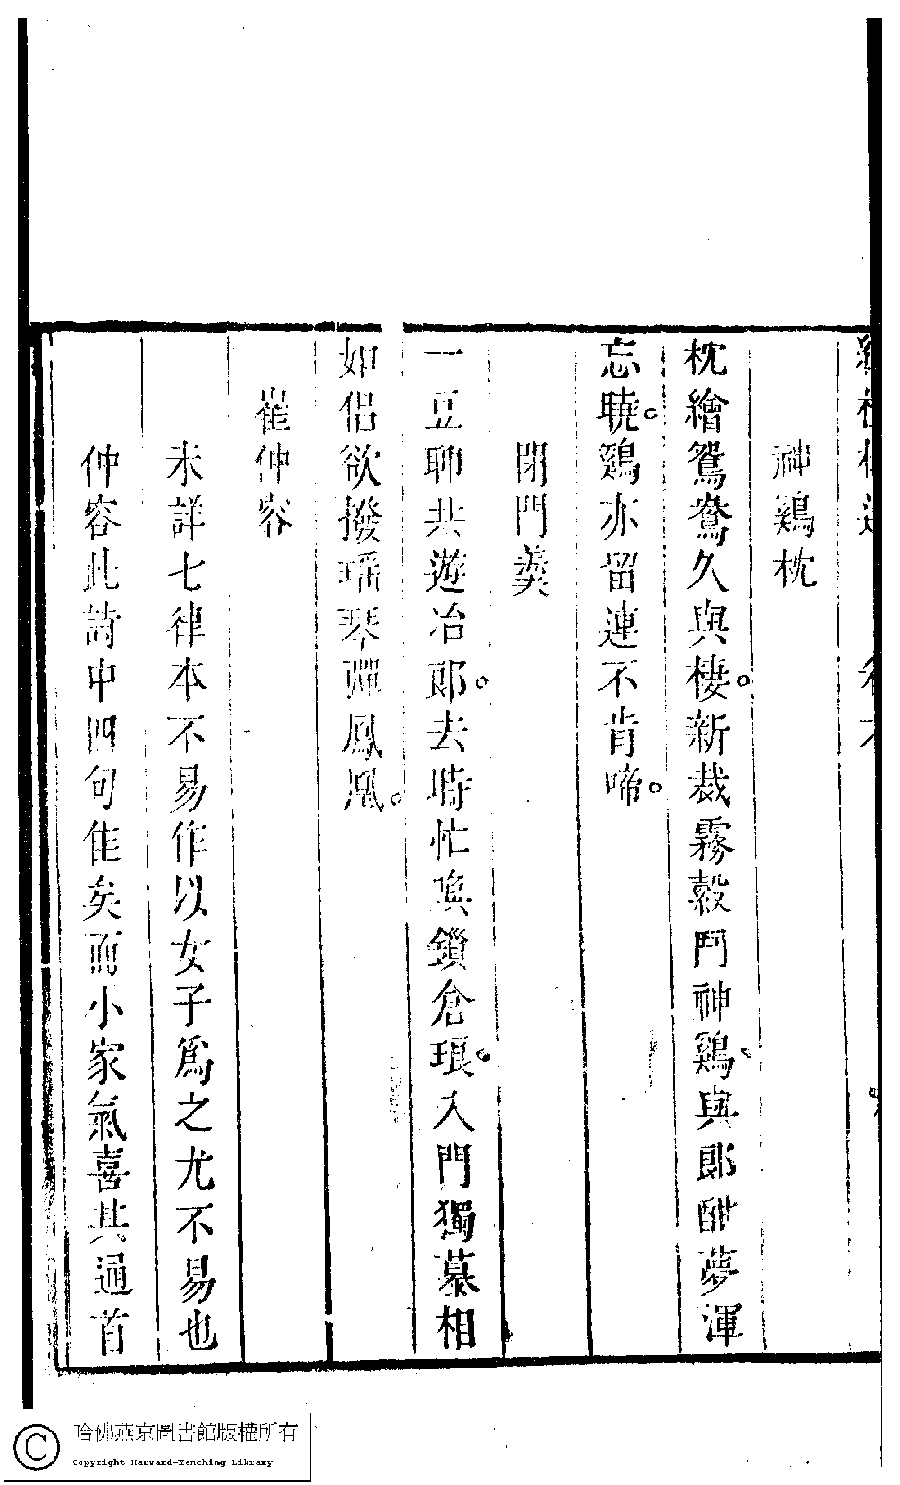 神鷄枕
枕繪鴛鴦久與棲。新裁霧縠鬥神鷄、與郎酣夢渾
忘曉。鷄亦留連不肯啼。
閉門羹
一豆聊共遊冶郎。去時忙喚鎖倉琅。入門獨慕相
如侶欲撥瑤琴彈鳳凰。
崔仲容
未詳七律本不易作以女子爲之尤不易也
仲容此詩中四句佳矣而小家氣喜其通首
哈佛燕京圖書館版權所有
Copyright Harvard-Yenching Library